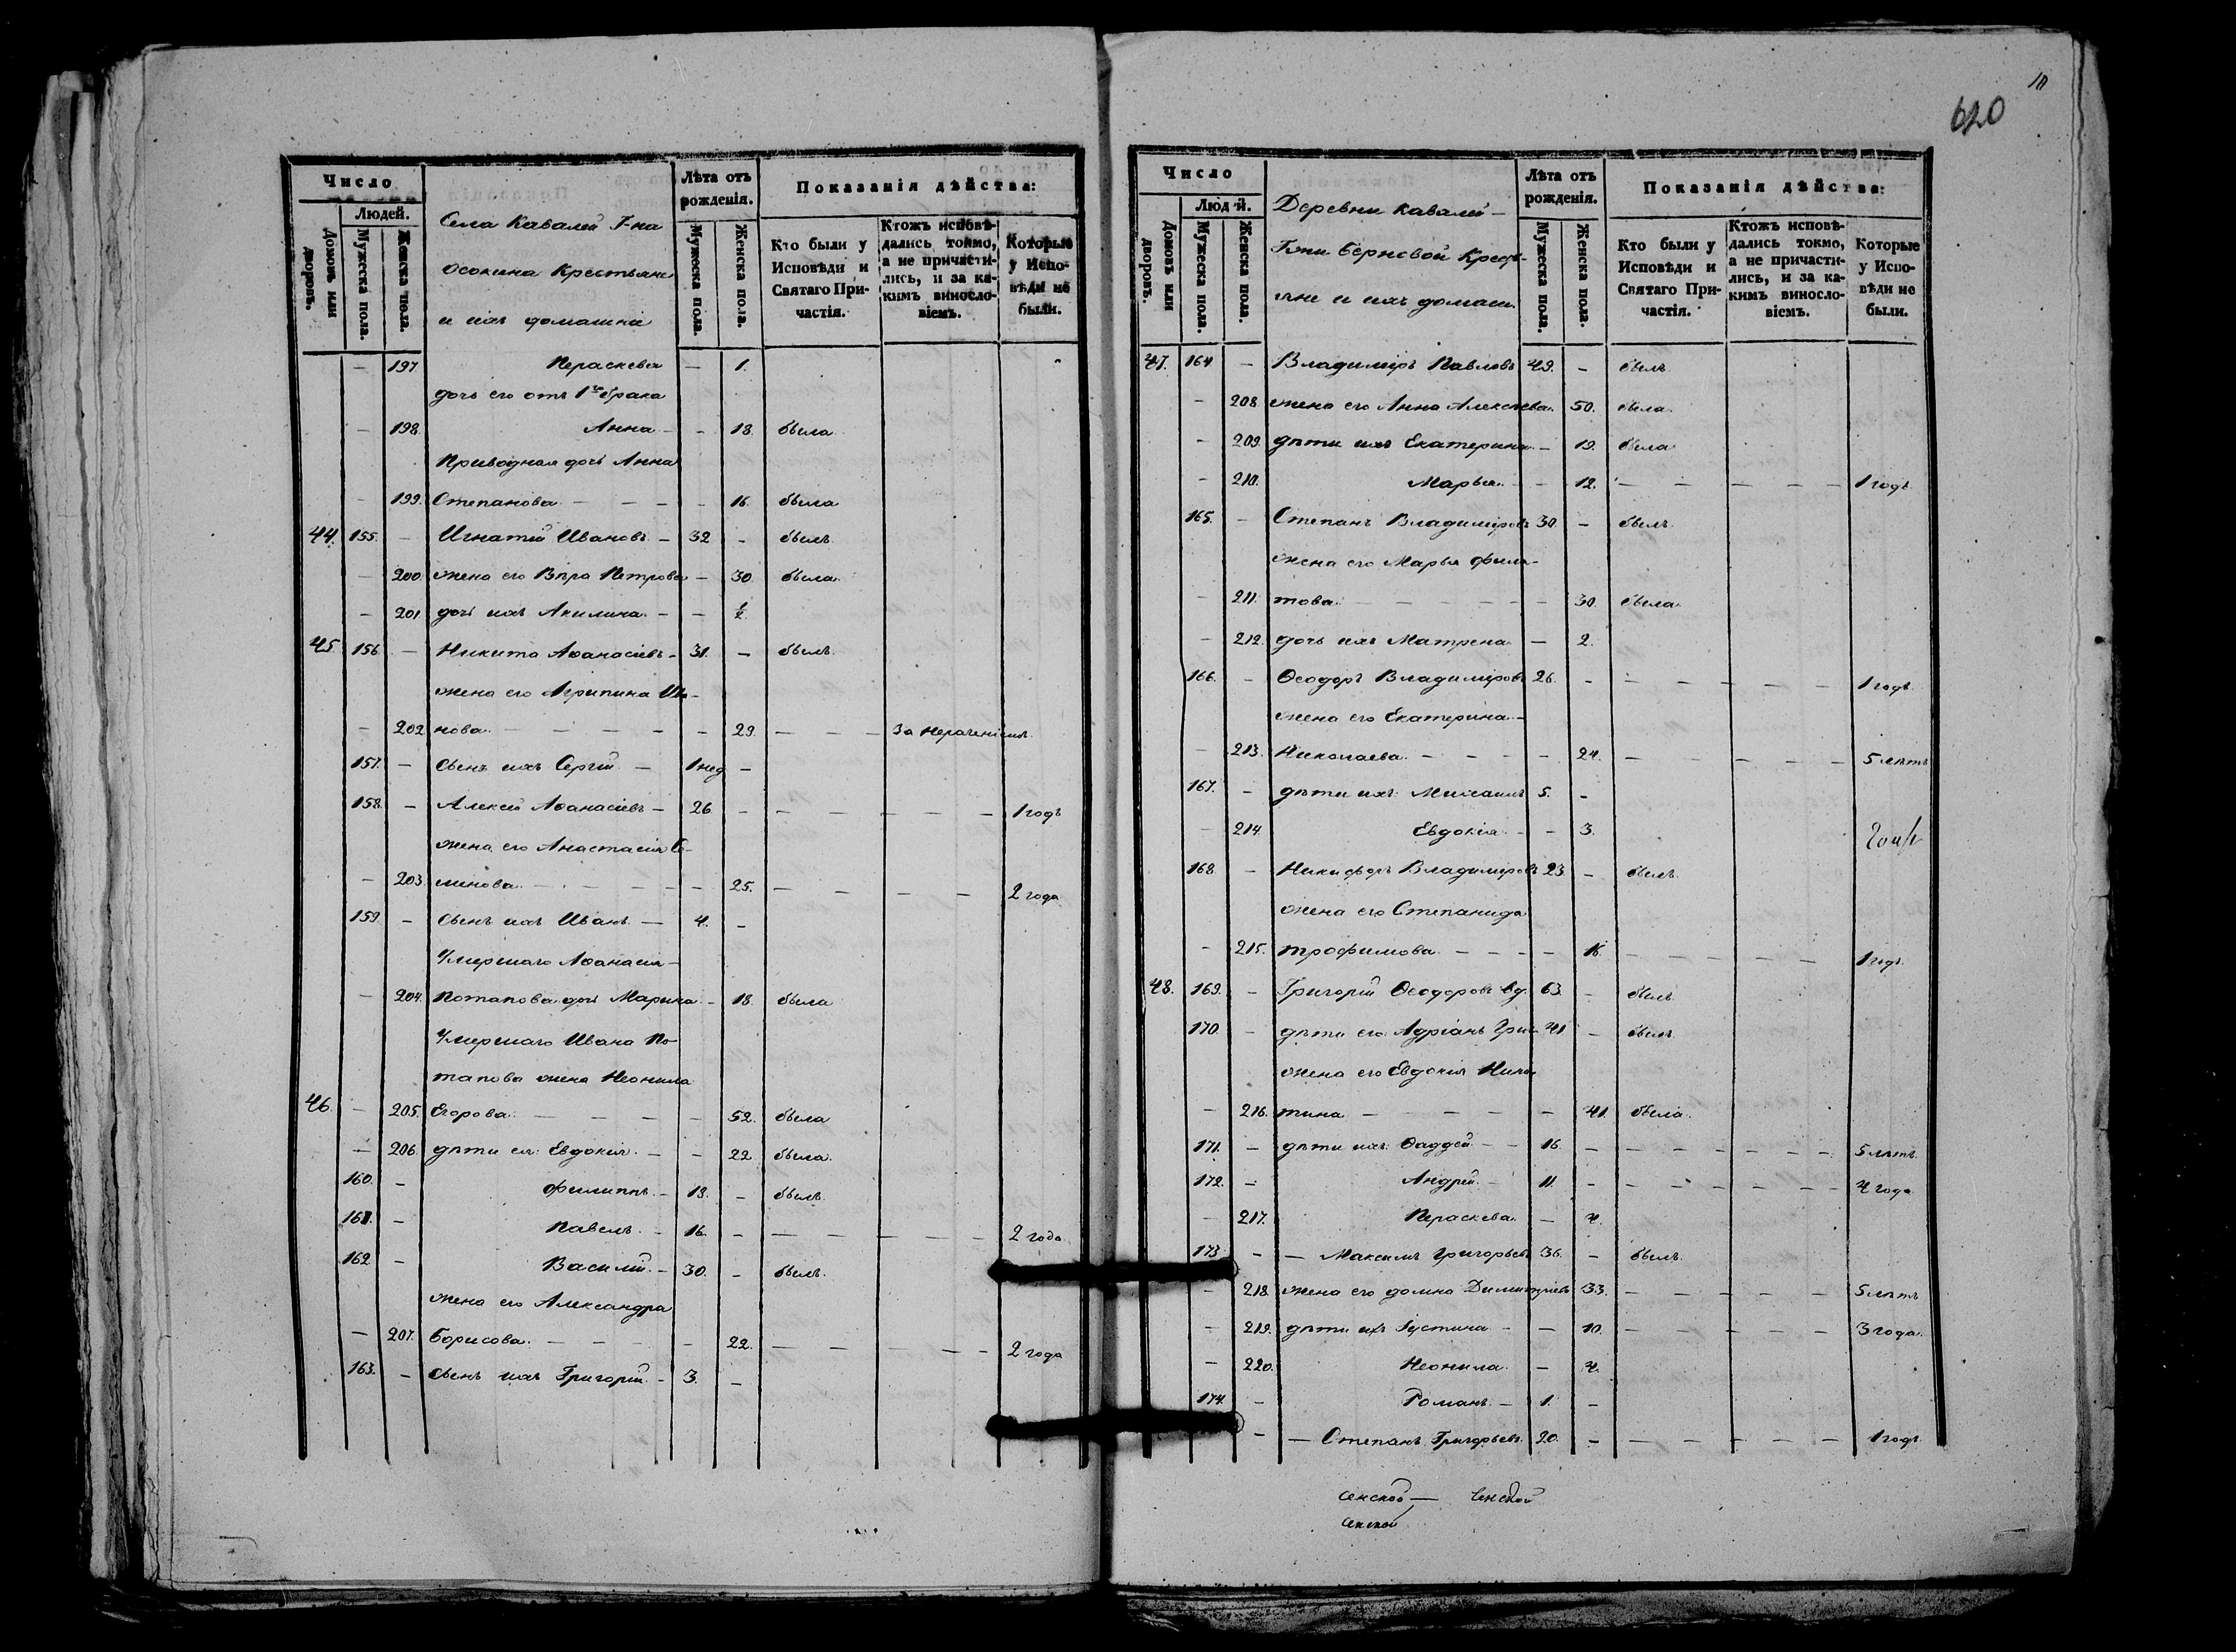 10
620
Число
Людей.
Домовъ или дворовъ.
Мужеска пола.
Женска пола.
Села Кавалей Г-на
Осокина Крестьяне
и ихъ домашніе
Лѣта отъ рожденія.
Мужеска пола.
Женска пола.
Показанія дѣйства:
Кто были у Исповѣди и Святаго Причастія.
Ктожъ исповѣдались токмо, а не причастились, и за какимъ винословіемъ.
Которые у Исповѣди не были.
— 197. Пераскева — 1.
дочь его отъ 1го брака
— 198 Анна — — 18. была
Приводная дочь Анна
— 199. Степанова — — — 16. была
44. 155. — Игнатій Ивановъ — 32 — былъ
— 200. жена его Вѣра Петрова — 30. была
— 201 дочь ихъ Акилина — — 1/2
45. 156 — Никита Аѳанасіевъ — 31. — былъ
жена его Агрипина Ива-
— 202 нова — — — — — 29. — — — За нераченіемъ
157. — сынъ ихъ Сергій — 1 нед —
158. — Алексій Аѳанасіевъ — 26 — — — — — — 1 годъ
жена его Анастасія
— 203. — — — — 25. — — — — 2 года
159. — сынъ ихъ Иванъ — 4. —
Умершаго Аѳанасія
— 204. Потапова дочь Марина — 18. была
Умершаго Ивана По-
тапова жена Неонила
46. — 205. Егорова — — — — 52. была
— 206. дѣти ея: Евдокія — — 22 была
160. — Филиппъ — 18. — былъ
161. — Павелъ — 16. — — — — — — 2 года
162 — Василій — 30. — былъ
жена его Александра
— 207. Борисова — — — — 22. — — — — — 2 года
163. — сынъ ихъ Григорій — 3. —
Число
Людей.
Домовъ или дворовъ.
Мужеска пола.
Женска пола.
Деревни Кавалей —
Гжи Берновой Крестья-
яне и ихъ домаш.
Лѣта отъ рожденія.
Мужеска пола.
Женска пола.
Показанія дѣйства:
Кто были у Исповѣди и Святаго Причастія.
Ктожъ исповѣдались токмо, а не причастились, и за какимъ винословіемъ.
Которые у Исповѣди не были.
47. 164 — Владиміръ Павловъ 49. — былъ
— 208 жена его Анна Алексѣева 50. была
— 209 дѣти ихъ Екатерина — 19. была
— 210. Марья — — 12. — — — — — 1 годъ
165. — Степанъ Владиміровъ 30. — былъ
жена его Марья Фила-
— 211. това — — — — 30. была
— 212. дочь ихъ Матрена — 2.
166. — Ѳеодоръ Владиміровъ 26. — — — — — — 1 годъ
жена его Екатерина —
— 213. Николаева — — — — 24. — — — — — 5 лѣтъ
167. — дѣти ихъ: Михаилъ 5. —
— 214. Евдокія — — 3.
168. — Никифоръ Владиміровъ 23 — былъ
жена его Степанида
— 215. Трофимова — — — — — — — — — 1 годъ
48. 169. — Григорій Ѳеодоровъ вд. 63. — былъ
170 — дѣти его: Адріанъ Григ. 41 — былъ
жена его Евдокія Ники-
— 216. тина — — — — — 41. была
171. — дѣти ихъ: Ѳаддей — — 16. — — — — — — — 5 лѣтъ
172. — Андрей — 11. — — — — — — — 4 года
— 217. Пераскева — 4.
173 — — Максимъ Григорьевъ 36. — былъ
— 218. жена его Домна Димитріева 33. — — — — — 5 лѣтъ
— 219. дѣти ихъ Іустина — — 10. — — — — — 3 года
— 220. Неонила — 4.
174. — Романъ — 1. —
— — Степанъ Григорьевъ 20. — — — — — — 1 годъ